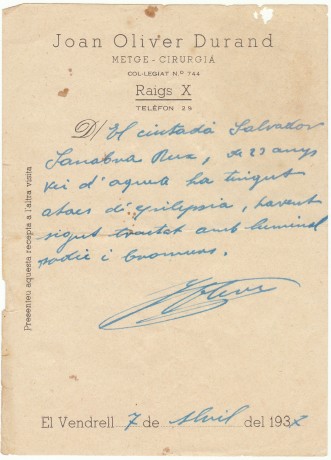 Joan Oliver Durand
METGE - CIRURGIÀ
COL·LEGIAT N.º 744
Raigs X
TELÈFON 28
D/ El ciutadà Salvador
Sanabra Rux, de 23 anys
veí d'aquea ha tingut
atacs d'epilepsia, havent
sigut tractat amb luminal
sodic i bromurs.
El Vendrell 7 de Abril del 1937
Presenteu aquesta recepta a l'altra visita